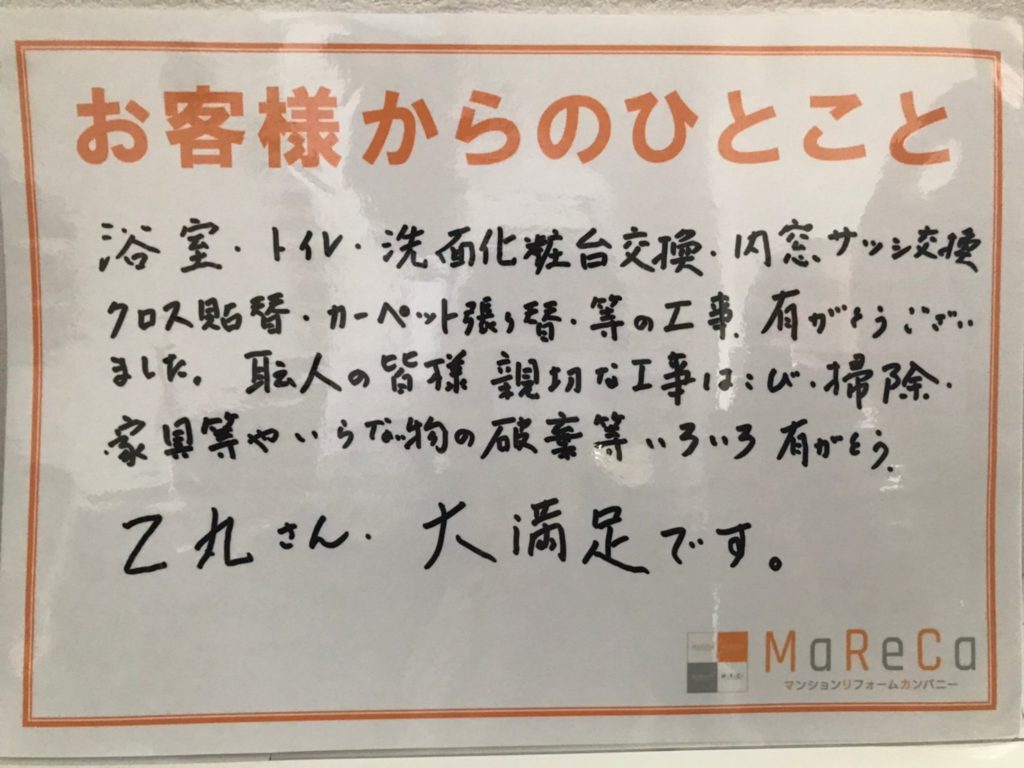 お客様からのひとこと
浴室・トイレ・洗面化粧台交換・内窓サッシ交換
クロス貼替・カーペット張り替・等の工事、有がとうござい
ました。職人の皆様 親切な工事はこび・掃除・
家具等やいらない物の破棄等いろいろ有がとう。
乙丸さん、大満足です。
MaReCa
マンションリフォームカンパニー